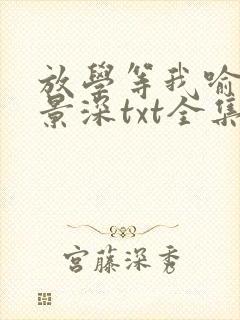 放學等我喻
景深txt全集
宮藤深秀